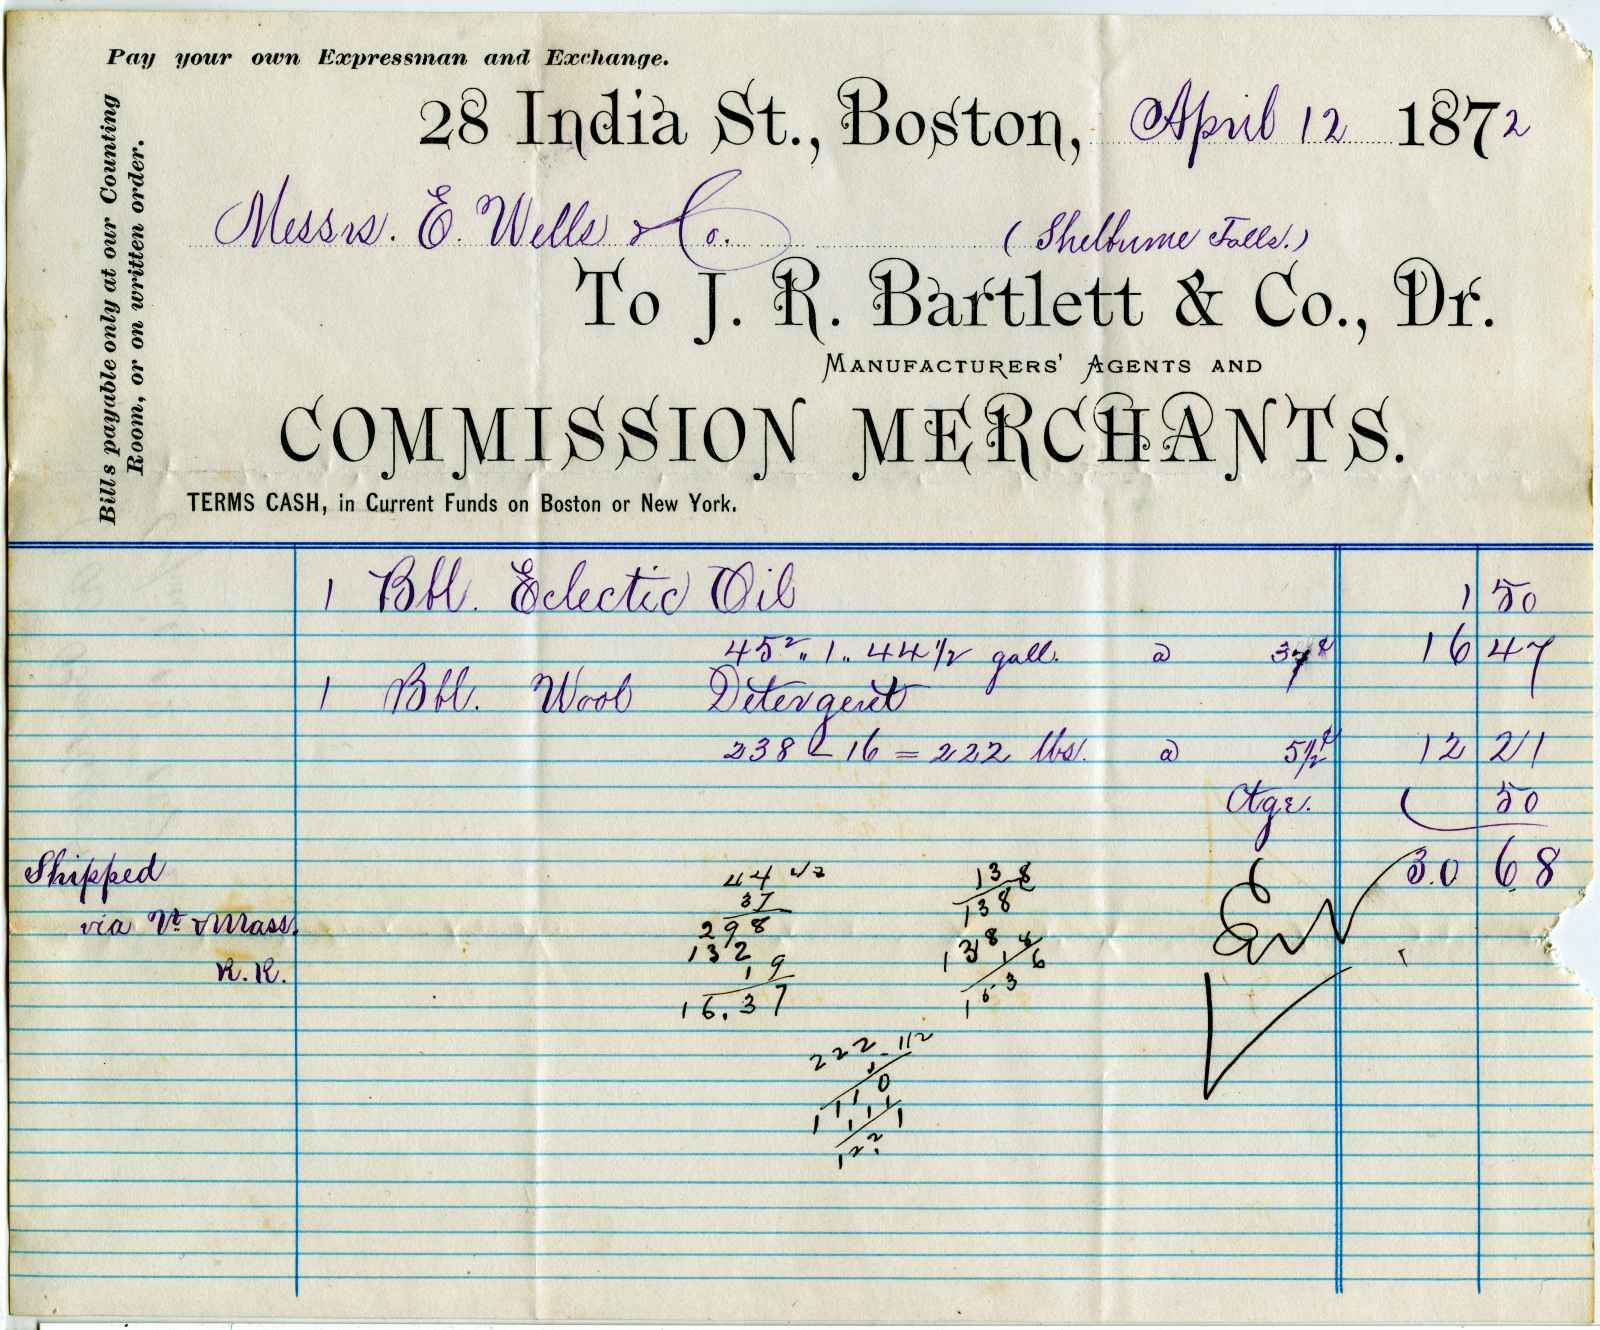 Pay your own Expressman and Exchange.
Bills payable only at our Counting
Room, or on written order.
28 India St., Boston, April 12 1872
Messrs. E. Wells & Co. (Shelburne Falls.)
To J. R. Bartlett & Co., Dr.
MANUFACTURERS' AGENTS AND
COMMISSION MERCHANTS.
TERMS CASH, in Current Funds on Boston or New York.
1 Bbl. Eclectic Oil 1 50
45² „ 1 „ 44 1/2 gall. @ 37¢ 16 47
1 Bbl. Wool Detergent
238 - 16 = 222 lbs. @ 5 1/2¢ 12 21
Ctge. 50
30 68
Shipped
via Vt & Mass.
R.R.
44 1/2
37
298
132
19
16.37
138
138
222
1110
111